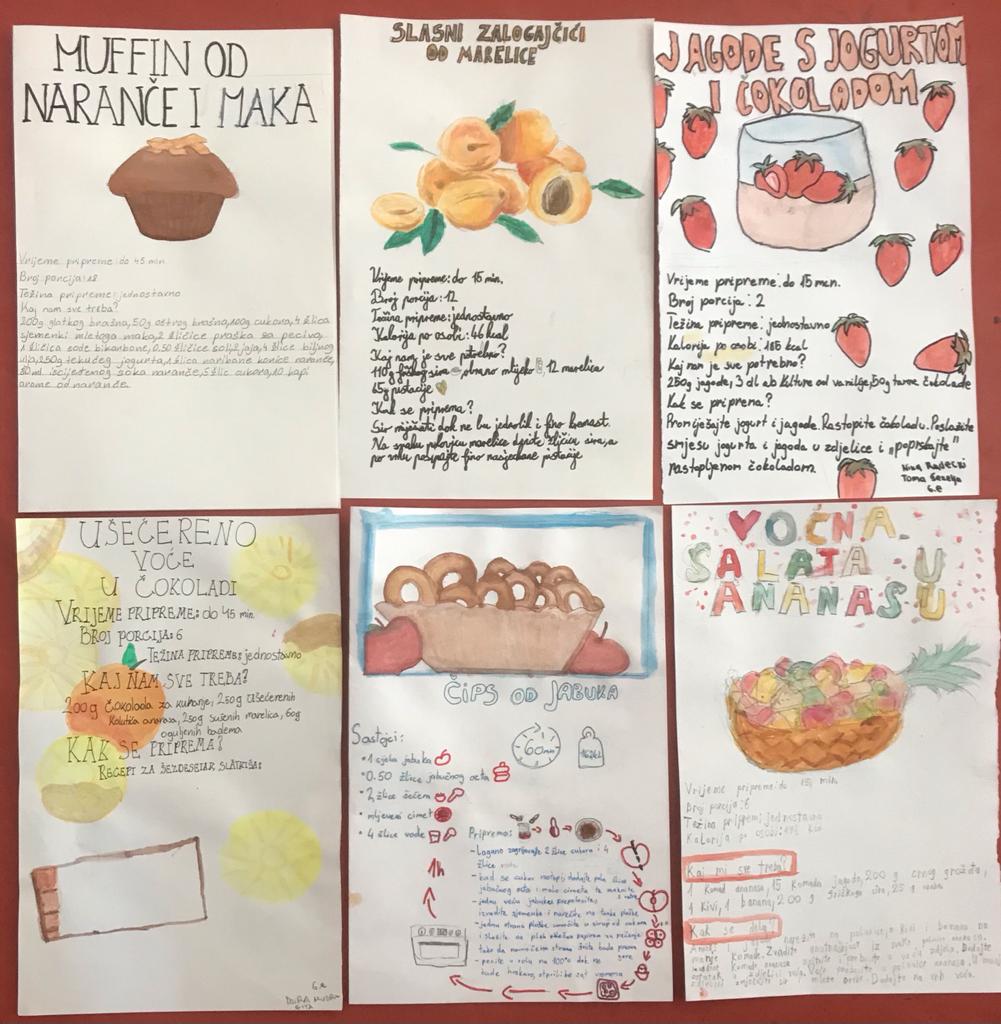 MUFFIN OD
NARANČE I MAKA
Vrijeme pripreme: do 45 min.
Broj porcija: 18
Težina pripreme: jednostavno
Kaj nam sve treba?
200g glatkog brašna, 50g oštrog brašna, 100g cukora, 4 žlica
sjemenki mletoga maka, 2 žličice praška za pecivo,
1 žličica sode bikarbone, 0.50 žličice soli, 2 jaja, 4 žlice biljnog
ulja, 250g tekućeg jogurta, 1 žlica naribane korice naranče,
80 ml. iscijeđenog soka naranče, 5 žlic cukora, 10 kapi
arome od naranče.
SLASNI ZALOGAJČIĆI
OD MARELICE
Vrijeme pripreme: do 15 min.
Broj porcija: 12
Težina pripreme: jednostavno
Kalorija po osobi: 46 kcal
Kaj nam je sve potrebno?
110g sira obrano mlijeko 12 marelica
65g pistacije
Kak se priprema?
Sir mješati dok ne bu jednolik i fino kremast.
Na svaku polovicu marelice denite žličicu sira, a
po vrhu posipajte fino nasjeckane pistacije
JAGODE S JOGURTOM
I ČOKOLADOM
Vrijeme pripreme: do 15 min.
Broj porcija: 2
Težina pripreme: jednostavno
Kalorija po osobi: 185 kcal
Kaj nam je sve potrebno?
250g jagode, 3 dl ab kulture od vanilije, 50g tamne čokolade
Kak se priprema?
Promiješajte jogurt i jagode. Rastopite čokoladu. Poslažite
smjesu jogurta i jagoda u zdjelice i „poprskajte"
rastopljenom čokoladom.
Toma
6.e
UŠEĆERENO
VOĆE
U ČOKOLADI
VRIJEME PRIPREME: do 45 min.
BROJ PORCIJA: 6
TEŽINA PRIPREME: jednostavno
KAJ NAM SVE TREBA?
200g čokolada za kuhanje, 250g ušećerenih
kolutića ananasa, 250g sušenih marelica, 60g
oguljenih badema
KAK SE PRIPREMA?
RECEPT ZA ŠEZDESETAK SLATKIŠA:
6.e
ČIPS OD JABUKA
Sastojci:
60 min
• 1 cijela jabuka
• 0.50 žlice jabučnog octa
• 2 žlice šećera
• mljeveni cimet
• 4 žlice vode
Priprema:
- Lagano zagrijavajte 2 žlice cukora i 4
žlice vode
- kad se cukor rastopi dodajte pola žlice
jabučnog octa i malo cimeta te maknite s vatre
- jednu veću jabuku prepolovite,
izvadite sjemenke i narežite na tanke ploške
- jednu stranu ploške umočite u sirup od cukora
i složite na pleh obložen papirom za pečenje
tako da namočena strana bude prema
gore
- pecite v rolu na 100°C dok ne
bude hrskavo, otprilike sat vremena
1h
VOĆNA
SALATA U
ANANASU
Vrijeme pripreme: do 15 min.
Broj porcija: 6
Težina pripreme: jednostavna
Kalorija po osobi: kcal
Kaj mi sve treba?
1 komad ananasa, 15 komada jagoda, 200 g crnog grožđa,
1 kivi, 1 banana, 200 g grčkoga sira, 25 g
Kak se dela?